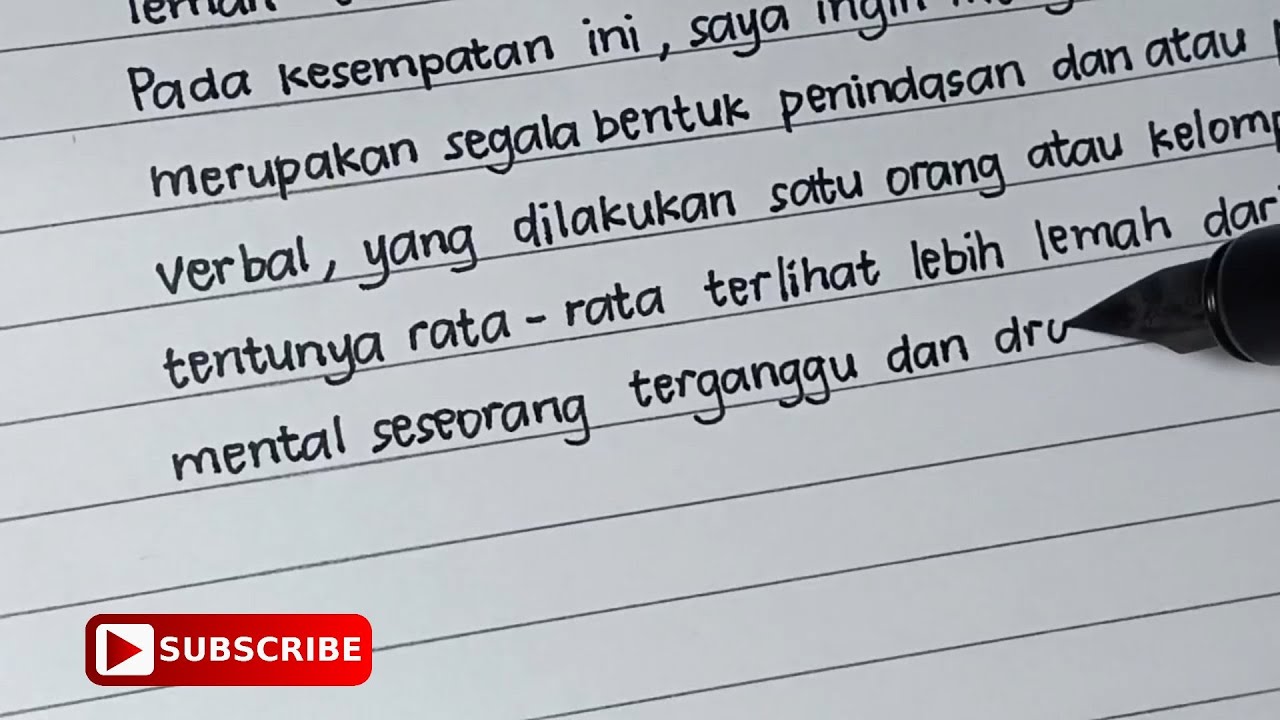 Pada kesempatan ini, saya ingin
merupakan segala bentuk penindasan dan atau
verbal, yang dilakukan satu orang atau
tentunya rata-rata terlihat lebih lemah dari
mental seseorang terganggu dan dru
SUBSCRIBE